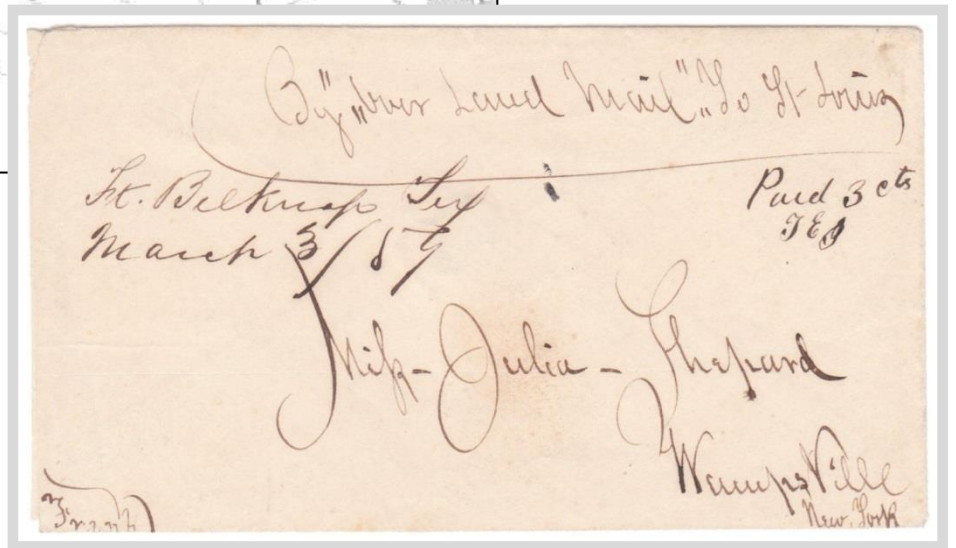 By "Over Land Mail" To St Louis
Ft. Belknap Tex
March 3/59
Paid 3 cts
Miss - Julia - Shepard
WampsVille
New, York
Frank